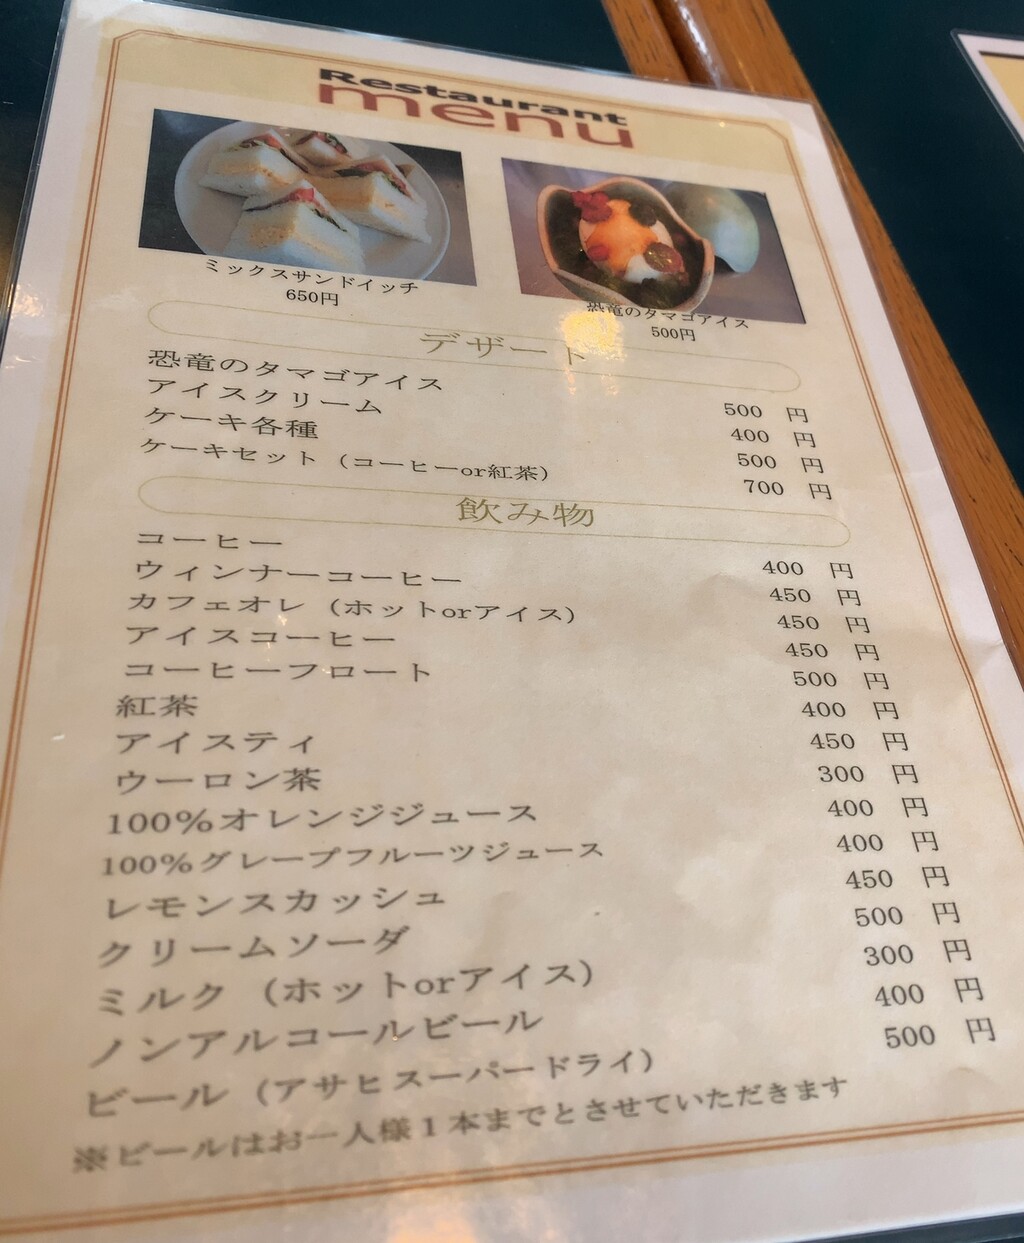 Restaurant
menu
ミックスサンドイッチ
650円
恐竜のタマゴアイス
500円
デザート
恐竜のタマゴアイス 500 円
アイスクリーム 400 円
ケーキ各種 500 円
ケーキセット（コーヒーor紅茶） 700 円
飲み物
コーヒー 400 円
ウィンナーコーヒー 450 円
カフェオレ（ホットorアイス） 450 円
アイスコーヒー 450 円
コーヒーフロート 500 円
紅茶 400 円
アイスティ 450 円
ウーロン茶 300 円
100%オレンジジュース 400 円
100%グレープフルーツジュース 400 円
レモンスカッシュ 450 円
クリームソーダ 500 円
ミルク（ホットorアイス） 300 円
ノンアルコールビール 400 円
ビール（アサヒスーパードライ） 500 円
※ビールはお一人様１本までとさせていただきます